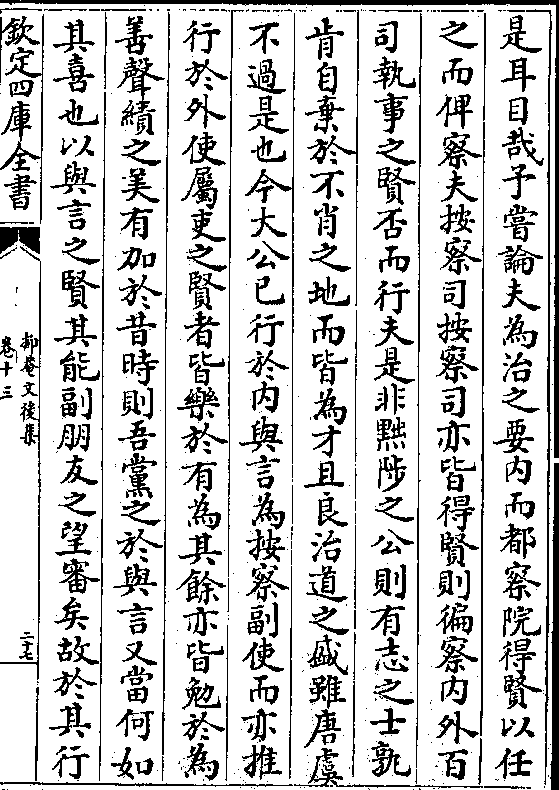 是耳目哉予嘗論夫為治之要内而都察院得賢以任
之而俾察夫按察司按察司亦皆得賢則徧察内外百
司執事之賢否而行夫是非黜陟之公則有志之士孰
肯自棄於不肖之地而皆為才且良治道之盛雖唐虞
不過是也今大公已行於内與言為按察副使而亦推
行於外使屬吏之賢者皆樂於有為其餘亦皆勉於為
善聲績之美有加於昔時則吾黨之於與言又當何如
其喜也以與言之賢其能副朋友之望審矣故於其行
欽定四庫全書
抑菴文後集
卷十三
二十七